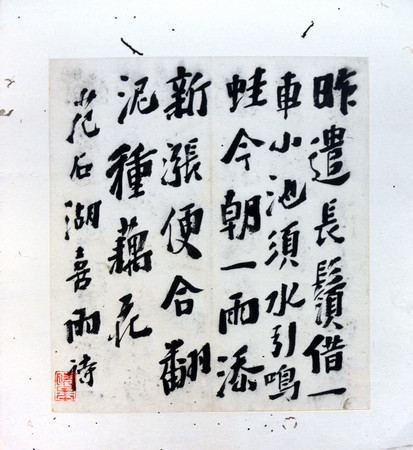 昨遣長鬚借一
車小池須水引鳴
蛙今朝一雨添
新漲便合翻
泥種藕花
范石湖喜雨詩